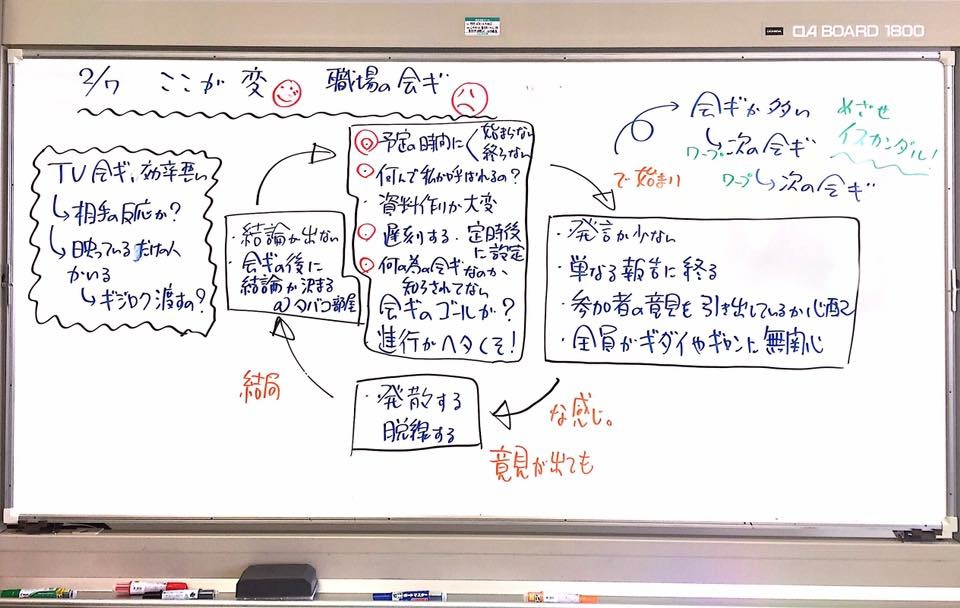 QA BOARD 1800
2/7 ここが変 職場の会ギ
TV会ギ、効率悪い
相手の反応が?
映っているだけの人
がいる
ギジロク渡すの?
・結論が出ない
・会ギの後に
結論が決まる
@タバコ部屋
予定の時間に 始まらない
終らない
何んで私が呼ばれるの?
資料作りが大変
遅刻する・定時後
に設定
何の為の会ギなのか
知らされてない
会ギのゴールが?
進行がヘタくそ!
で始まり
会ギが多い
ワープ 次の会ギ
ワープ 次の会ギ
めざせ
イスカンダル!
・発言が少ない
・単なる報告に終る
・参加者の意見を引き出しているか心配
・全員がギダイやギロンに無関心
な感じ。
意見が出ても
・発散する
脱線する
結局